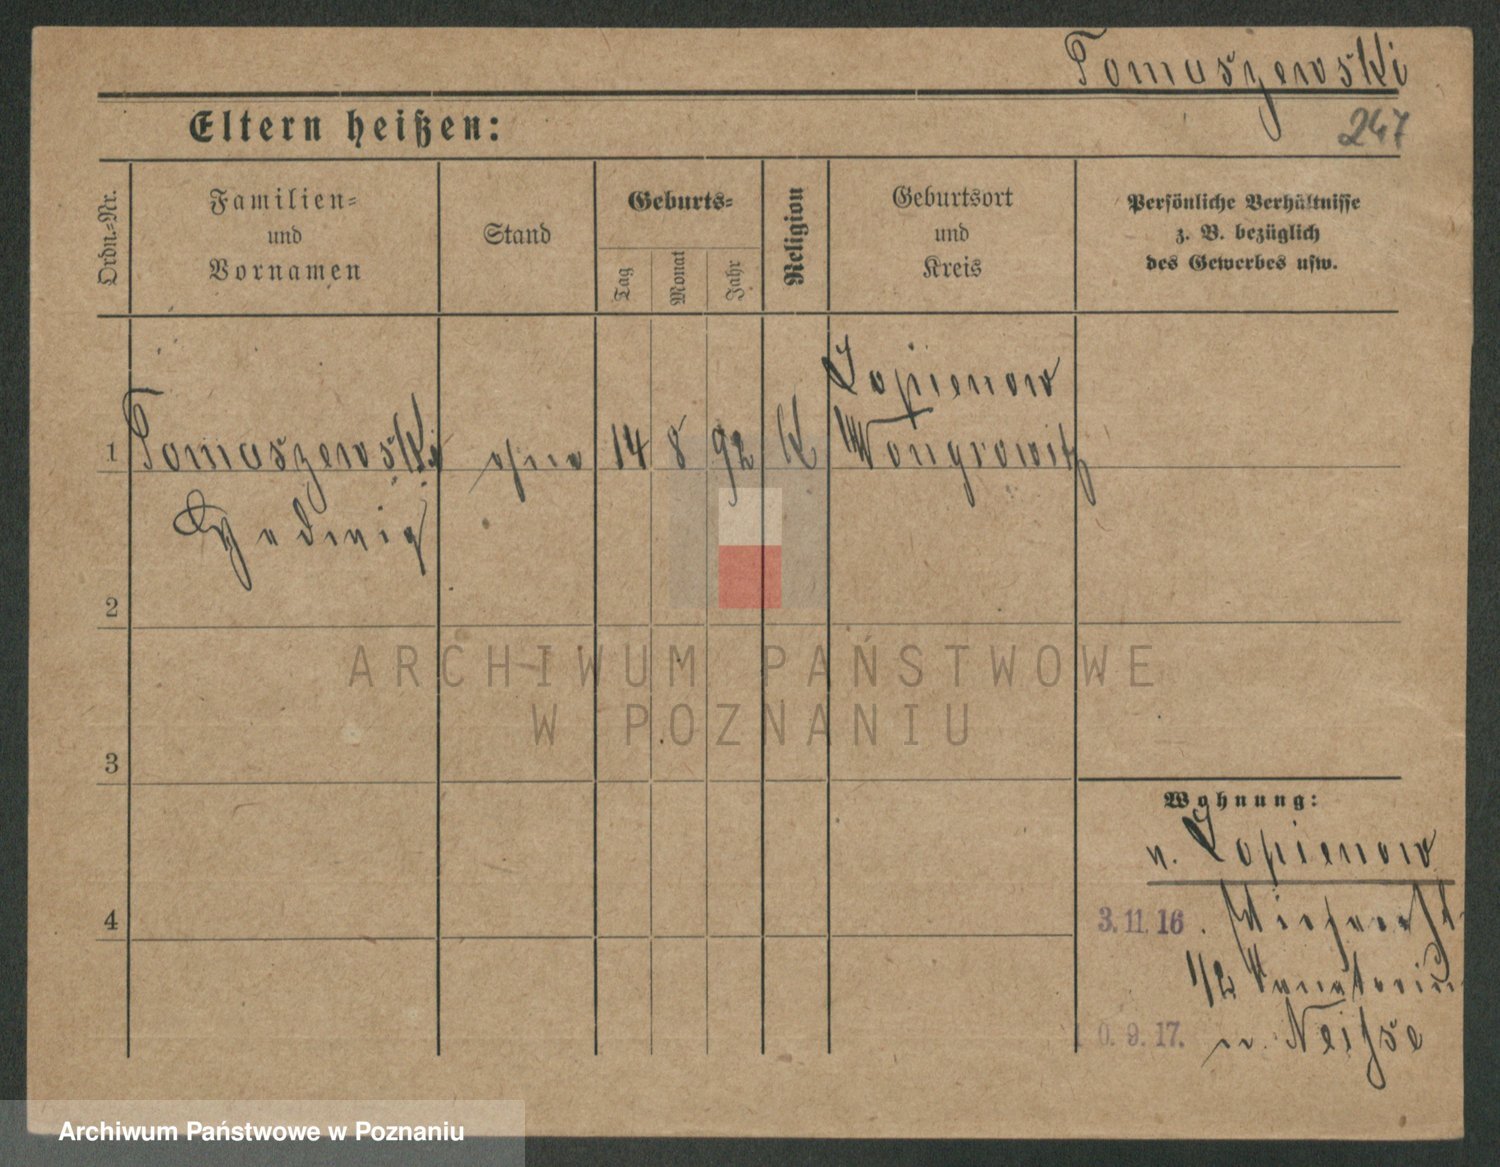 Tomaszewski
Eltern heißen:
247
Ordn.-Nr.
Familien-
und
Vornamen
Stand
Geburts-
Tag
Monat
Jahr
Religion
Geburtsort
und
Kreis
Persönliche Verhältnisse
z. B. bezüglich
des Gewerbes usw.
Lopienow
1 Tomaszewski ohne 14 8 92 K Wongrowitz
Hedwig
2
ARCHIWUM PAŃSTWOWE
W POZNANIU
3
Wohnung:
v. Lopienow
4
3. 11. 16
1/2 Sanatorium
10. 9. 17. n. Neisse
Archiwum Państwowe w Poznaniu